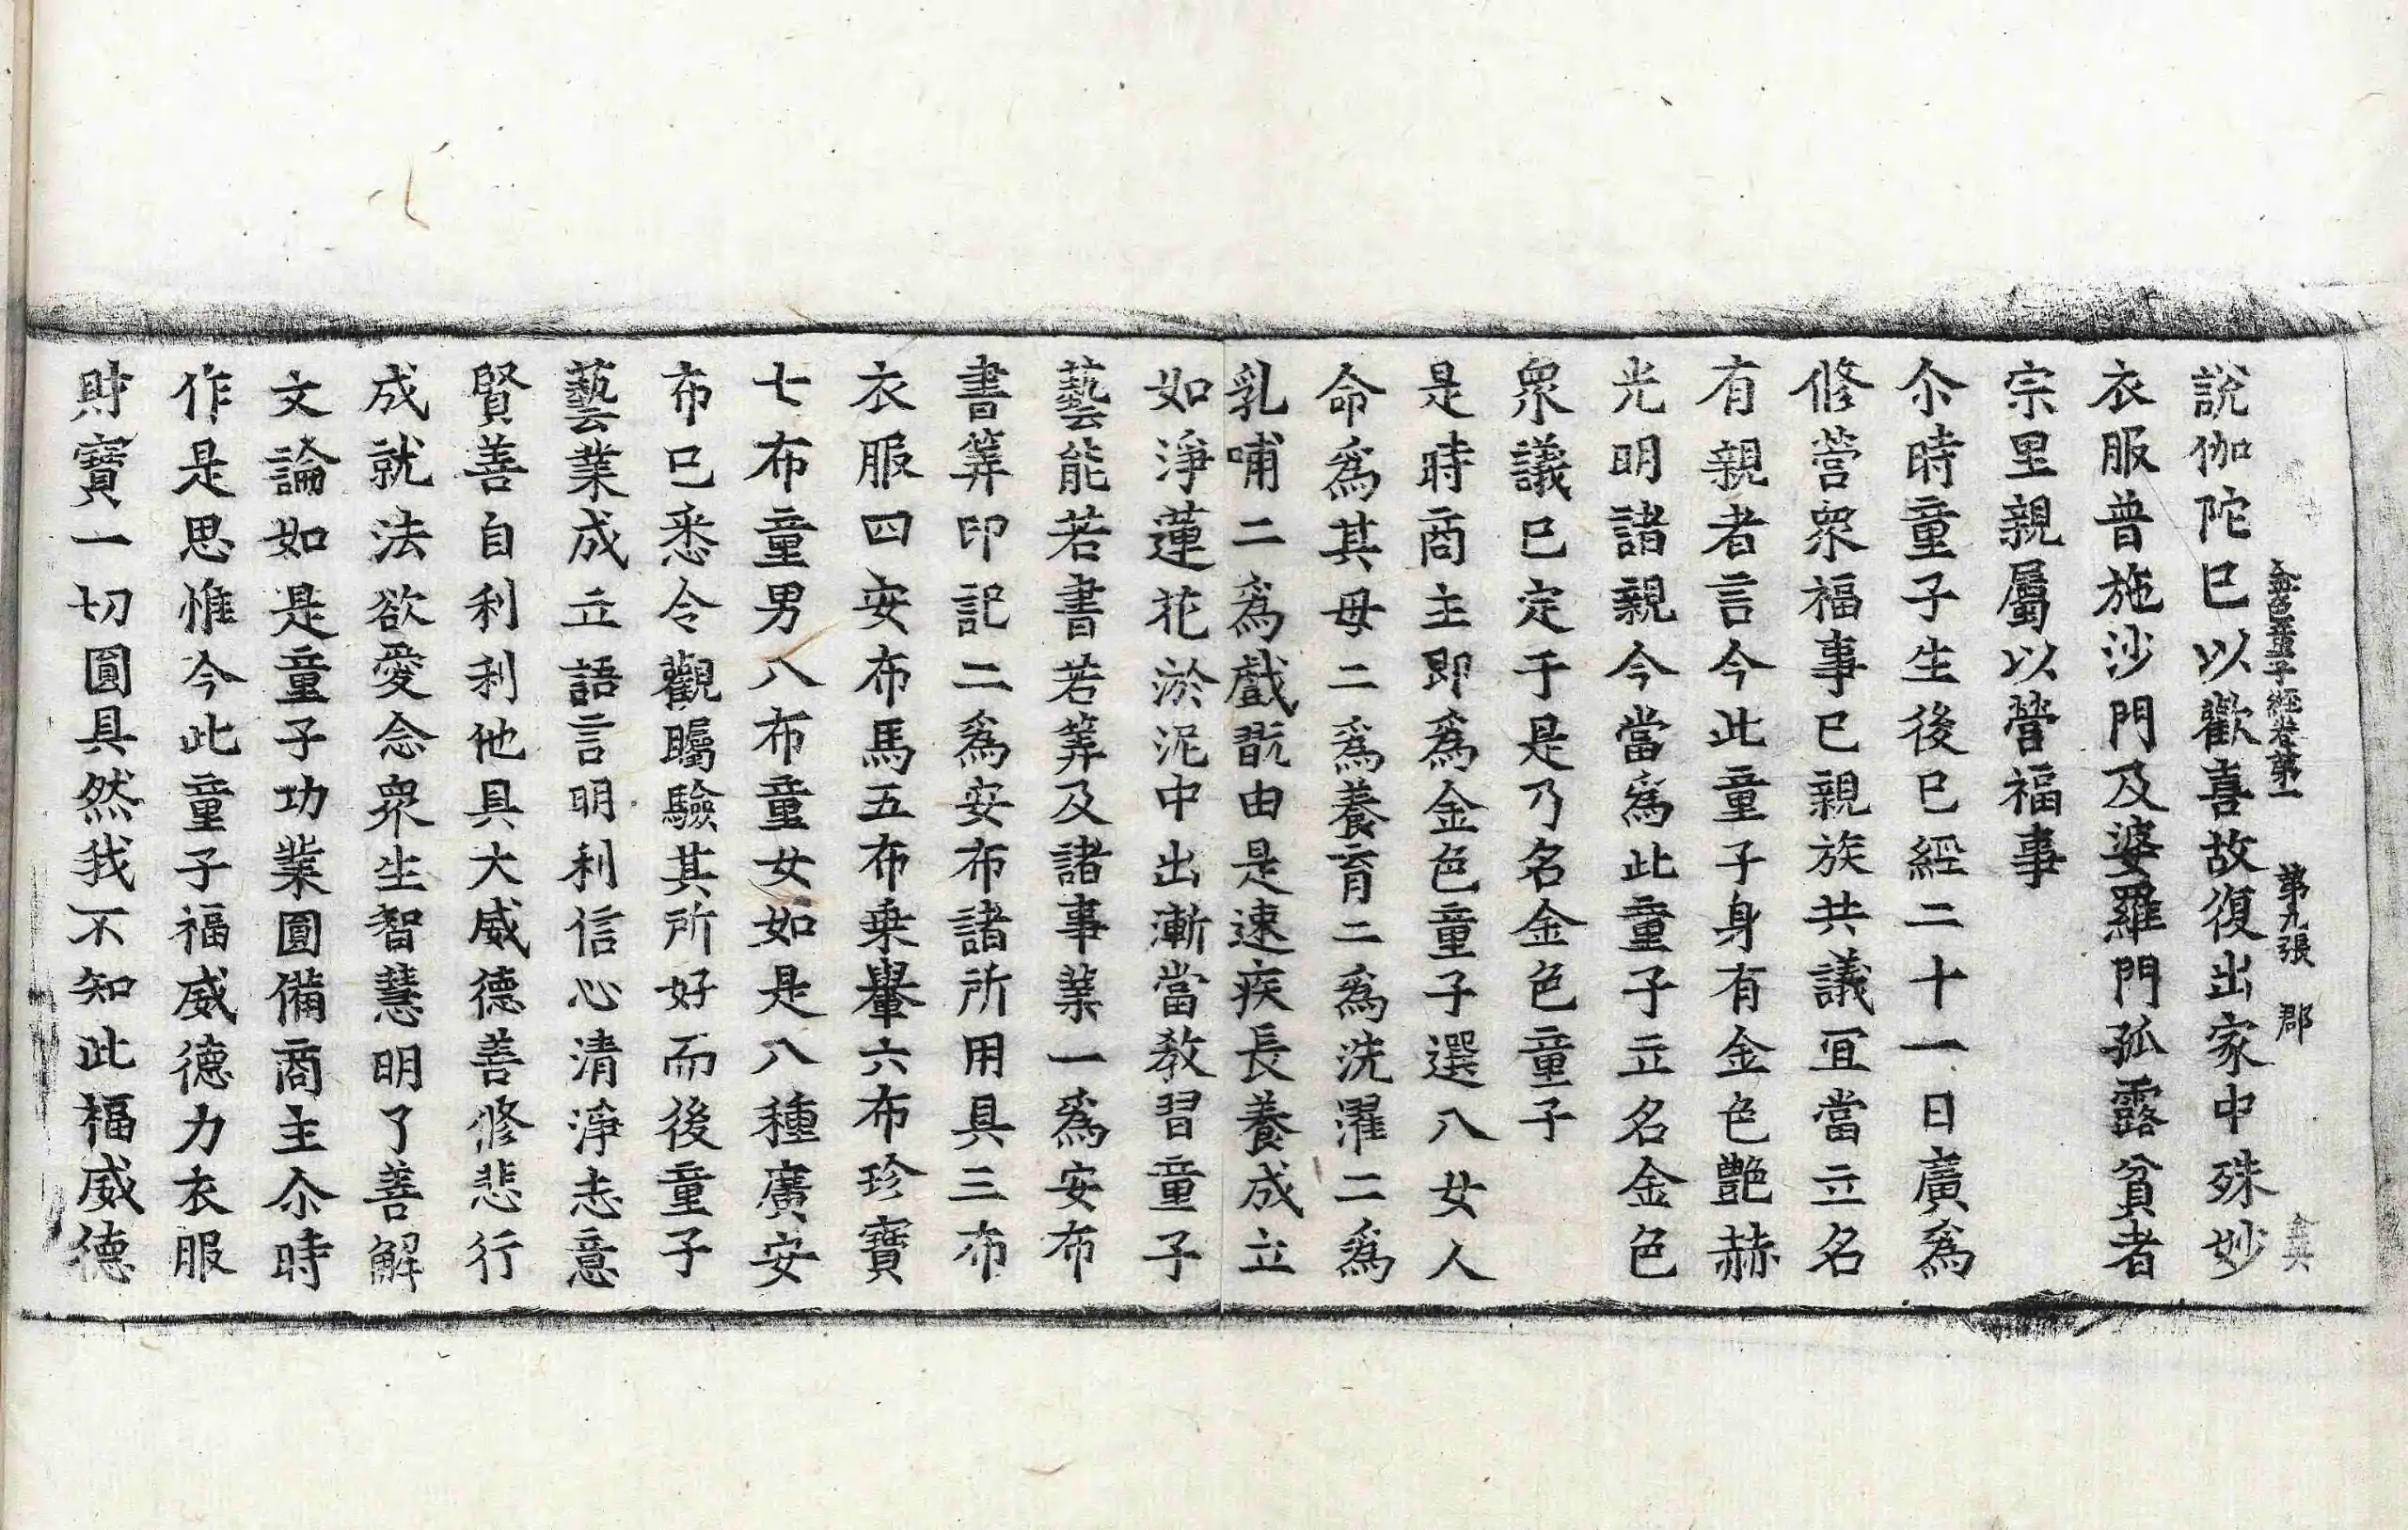 金色童子經卷第一 第九張 郡
說伽陀已以歡喜故復出家中殊妙
衣服普施沙門及婆羅門孤露貧者
宗里親屬以營福事
尒時童子生後已經二十一日廣爲
修營衆福事已親族共議冝當立名
有親者言今此童子身有金色艶赫
光明諸親今當爲此童子立名金色
衆議已定于是乃名金色童子
是時商主即爲金色童子選八女人
命爲其母二爲養育二爲洗濯二爲
乳哺二爲戲翫由是速疾長養成立
如淨蓮花淤泥中出漸當教習童子
藝能若書若筭及諸事業一爲安布
書筭印記二爲安布諸所用具三布
衣服四安布馬五布乗轝六布珍寶
七布童男八布童女如是八種廣安
布已悉令觀矚驗其所好而後童子
藝業成立語言明利信心清淨志意
賢善自利利他具大威德善修悲行
成就法欲愛念衆生智慧明了善解
文論如是童子功業圓備商主尒時
作是思惟今此童子福威德力衣服
財寶一切圓具然我不知此福威德